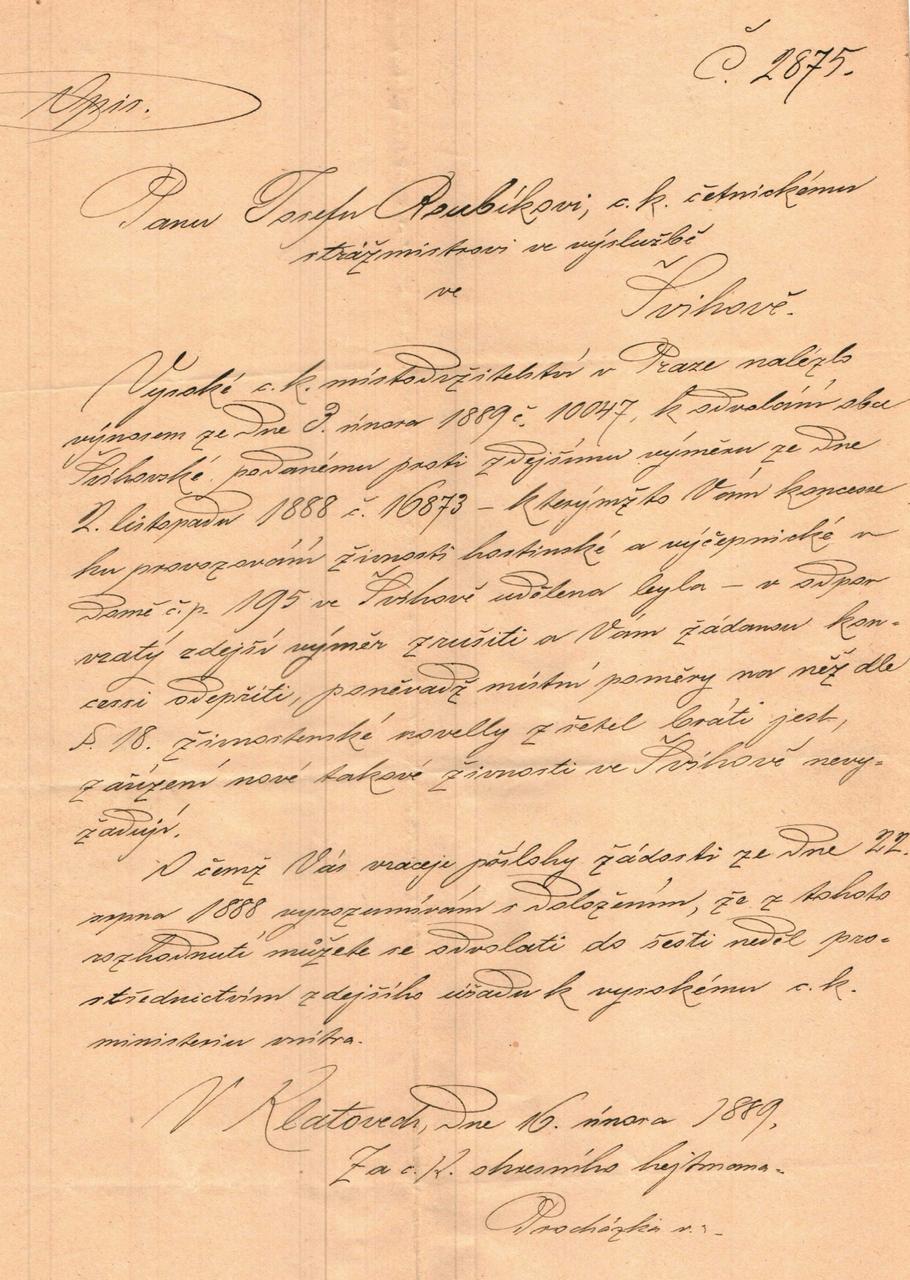 Č. 2875.
Opis.
Panu Josefu Roubíkovi, c. k. četnickému
strážmistrovi ve výslužbě
ve
Švihově.
Vysoké c. k. místodržitelství v Praze nalézlo
výnosem ze dne 3. února 1889 č. 10047, k odvolání obce
Švihovské podanému proti zdejšímu výměru ze dne
2. listopadu 1888 č. 16873 – kterýmžto Vám koncesse
ku provozování živnosti hostinské a výčepnické v
domě č. p. 195 ve Švihově udělena byla – v odpor
vzatý zdejší výměr zrušiti a Vám žádanou kon-
cessi odepříti, poněvadž místní poměry na něž dle
§. 18. živnostenské novelly zřetel bráti jest,
zařízení nové takové živnosti ve Švihově nevy-
žadují.
O čemž Vás vraceje přílohy žádosti ze dne 22.
srpna 1888 vyrozumívám s doložením, že z tohoto
rozhodnutí můžete se odvolati do šesti neděl pro-
střednictvím zdejšího úřadu k vysokému c. k.
ministeriu vnitra.
V Klatovech, dne 16. února 1889.
Za c. k. okresního hejtmana
Procházka